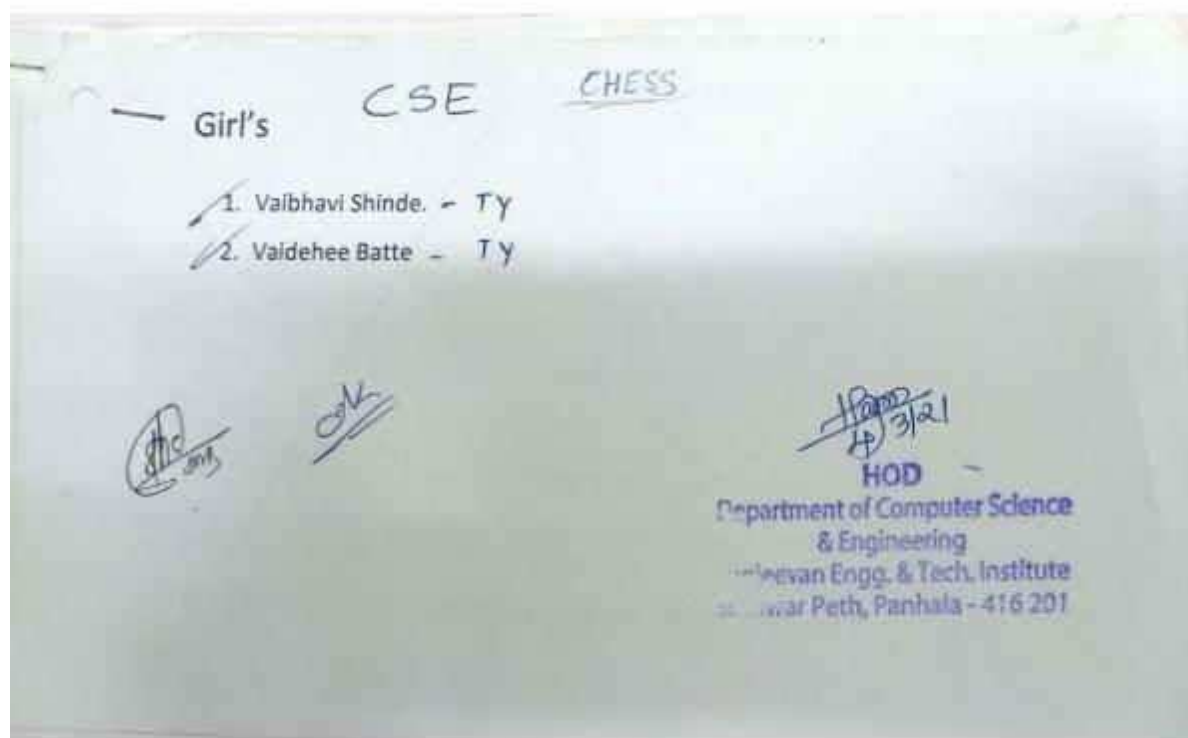 CSE CHESS
Girl's
1. Vaibhavi Shinde. - TY
2. Vaidehee Batte - TY
OK
4/3/21
HOD
Department of Computer Science
& Engineering
Engg. & Tech. Institute
Peth, Panhala - 416 201